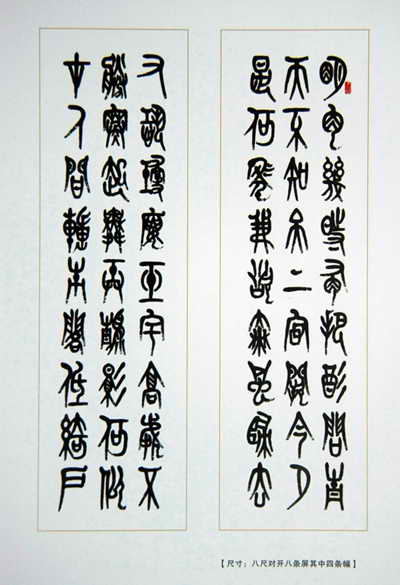 明月幾時有把酒問青
天不知天上宮闕今夕
是何年我欲乘風歸去
又恐瓊樓玉宇高處不
勝寒起舞弄清影何似
在人間轉朱閣低綺戶
【尺寸：八尺对开八条屏其中四条幅】